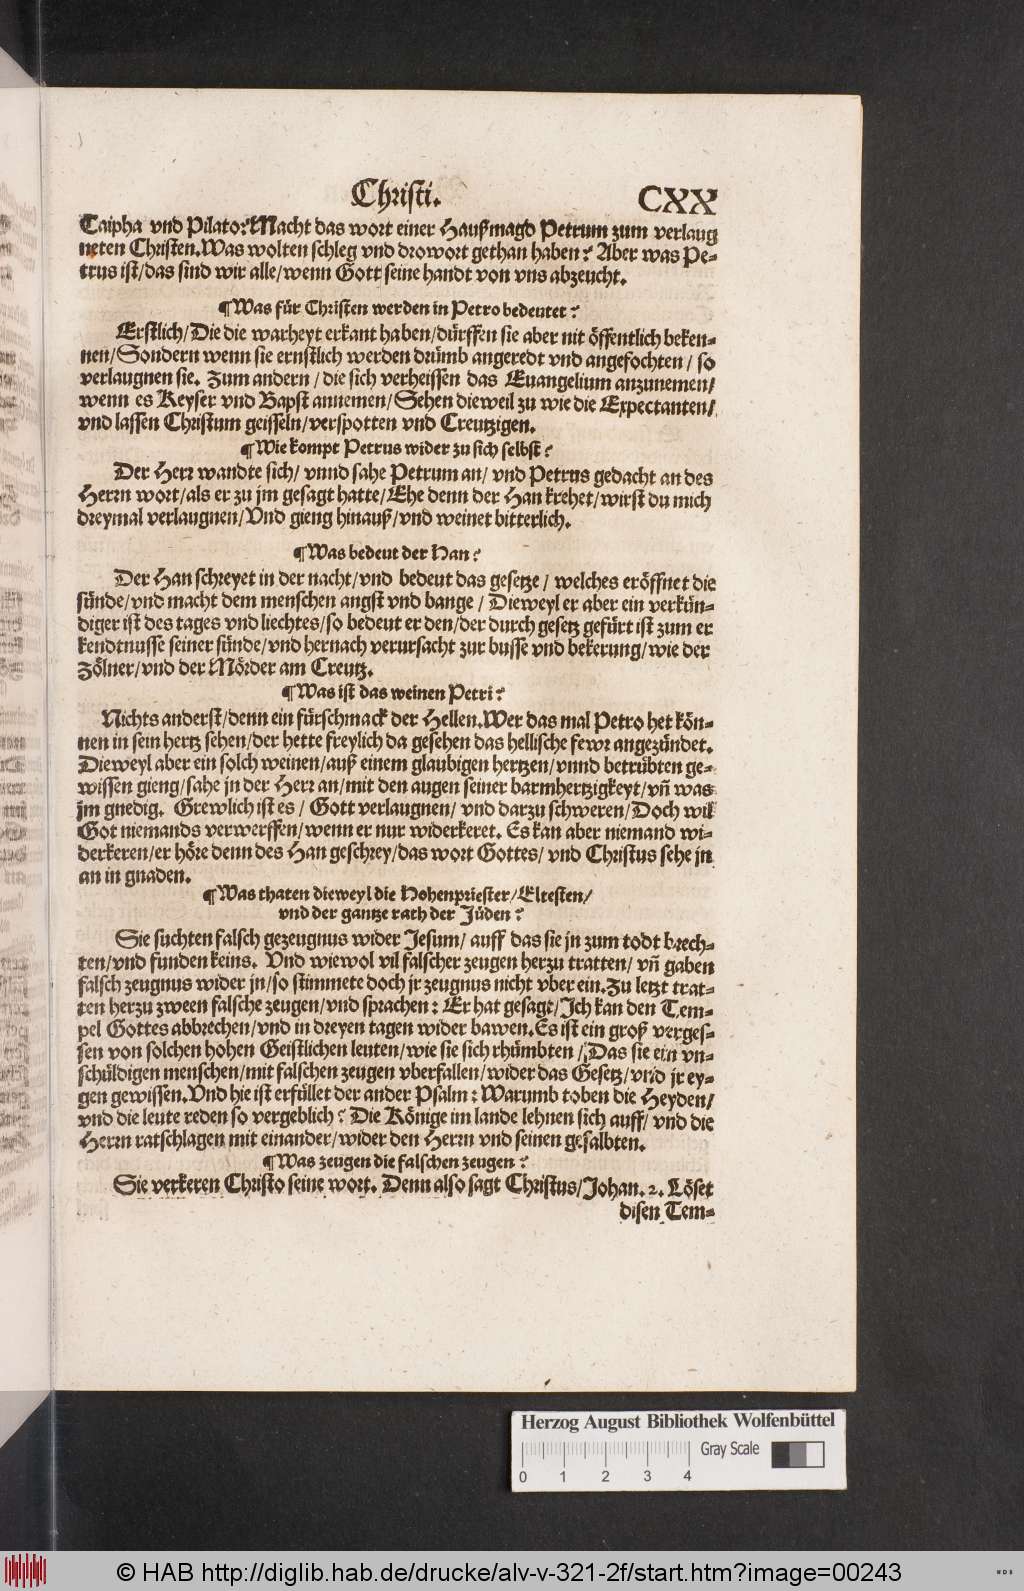 Christi. CXX
Caipha vnd Pilato? Macht das wort einer Haußmagd Petrum zum verlaug
neten Christen. Was wolten schleg vnd drowort gethan haben? Aber was Pe-
trus ist/das sind wir alle/wenn Gott seine handt von vns abzeucht.
¶ Was für Christen werden in Petro bedeutet?
Erstlich/Die die warheyt erkant haben/dürffen sie aber nit öffentlich beken-
nen/Sondern wenn sie ernstlich werden drümb angeredt vnd angefochten/ so
verlaugnen sie. Zum andern/die sich verheissen das Euangelium anzunemen/
wenn es Keyser vnd Bapst annemen/Sehen dieweil zu wie die Expectanten/
vnd lassen Christum geisseln/verspotten vnd Creutzigen.
¶ Wie kompt Petrus wider zu sich selbst?
Der Herr wandte sich/ vnnd sahe Petrum an/ vnd Petrus gedacht an des
Herrn wort/als er zu jm gesagt hatte/Ehe denn der Han krehet/wirst du mich
dreymal verlaugnen/Vnd gieng hinauß/vnd weinet bitterlich.
¶ Was bedeut der Han?
Der Han schreyet in der nacht/vnd bedeut das gesetze/ welches eröffnet die
sünde/vnd macht dem menschen angst vnd bange/ Dieweyl er aber ein verkün-
diger ist des tages vnd liechtes/so bedeut er den/der durch gesetz gefürt ist zum er
kendtnusse seiner sünde/vnd hernach verursacht zur busse vnd bekerung/wie der
Zölner/vnd der Mörder am Creutz.
¶ Was ist das weinen Petri?
Nichts anderst/denn ein fürschmack der Hellen. Wer das mal Petro het kön-
nen in sein hertz sehen/der hette freylich da gesehen das hellische fewr angezündet.
Dieweyl aber ein solch weinen/auß einem glaubigen hertzen/vnnd betrübten ge-
wissen gieng/sahe jn der Herr an/mit den augen seiner barmhertzigkeyt/vñ was
jm gnedig. Grewlich ist es/ Gott verlaugnen/ vnd darzu schweren/Doch wil
Got niemands verwerffen/wenn er nur widerkeret. Es kan aber niemand wi-
derkeren/er höre denn des Han geschrey/das wort Gottes/ vnd Christus sehe jn
an in gnaden.
¶ Was thaten dieweyl die Hohenpriester/Eltesten/
vnd der gantze rath der Jüden?
Sie suchten falsch gezeugnus wider Jesum/ auff das sie jn zum todt brech-
ten/vnd funden keins. Vnd wiewol vil falscher zeugen herzu tratten/ vñ gaben
falsch zeugnus wider jn/so stimmete doch jr zeugnus nicht vber ein. Zu letzt trat-
ten herzu zween falsche zeugen/vnd sprachen: Er hat gesagt/Ich kan den Tem-
pel Gottes abbrechen/vnd in dreyen tagen wider bawen. Es ist ein groß verges-
sen von solchen hohen Geistlichen leuten/wie sie sich rhümbten/Das sie ein vn-
schüldigen menschen/mit falschen zeugen vberfallen/wider das Gesetz/vnd jr ey-
gen gewissen. Vnd hie ist erfüllet der ander Psalm: Warumb toben die Heyden/
vnd die leute reden so vergeblich? Die Könige im lande lehnen sich auff/ vnd die
Herrn ratschlagen mit einander/wider den Herrn vnd seinen gesalbten.
¶ Was zeugen die falschen zeugen?
Sie verkeren Christo seine wort. Denn also sagt Christus/Johan. 2. Löset
disen Tem-
Herzog August Bibliothek Wolfenbüttel
Gray Scale
0 1 2 3 4
© HAB http://diglib.hab.de/drucke/alv-v-321-2f/start.htm?image=00243